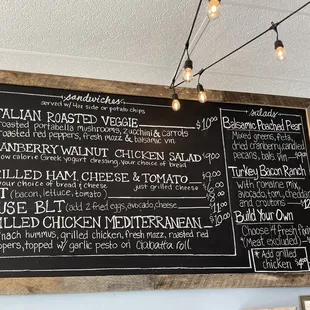 sandwiches
served w/ 4oz side or potato chips
TALIAN ROASTED VEGGIE $10.00
roasted portabella mushrooms, zucchini & carrots
roasted red peppers, fresh mozz & balsamic vin.
ANBERRY WALNUT CHICKEN SALAD $9.00
ow calorie Greek yogurt dressing, your choice of bread
RILLED HAM, CHEESE & TOMATO
your choice of bread & cheese just grilled cheese
(bacon, lettuce, tomato)
USE BLT (add 2 fried eggs, avocado, cheese $11.00
RILLED CHICKEN MEDITERRANEAN $10.00
nach hummus, grilled chicken, fresh mozz, roasted red
ppers, topped w/ garlic pesto on Ciabatta roll
salads
Balsamic Poached Pear
Mixed greens, feta,
dried cranberry, candied
pecans, bals vin
Turkey Bacon Ranch
with romaine mix,
avocado, tom, cheddar
and croutons
Build Your Own
Choose 4 fresh
(Meat excluded)
* Add grilled
chicken